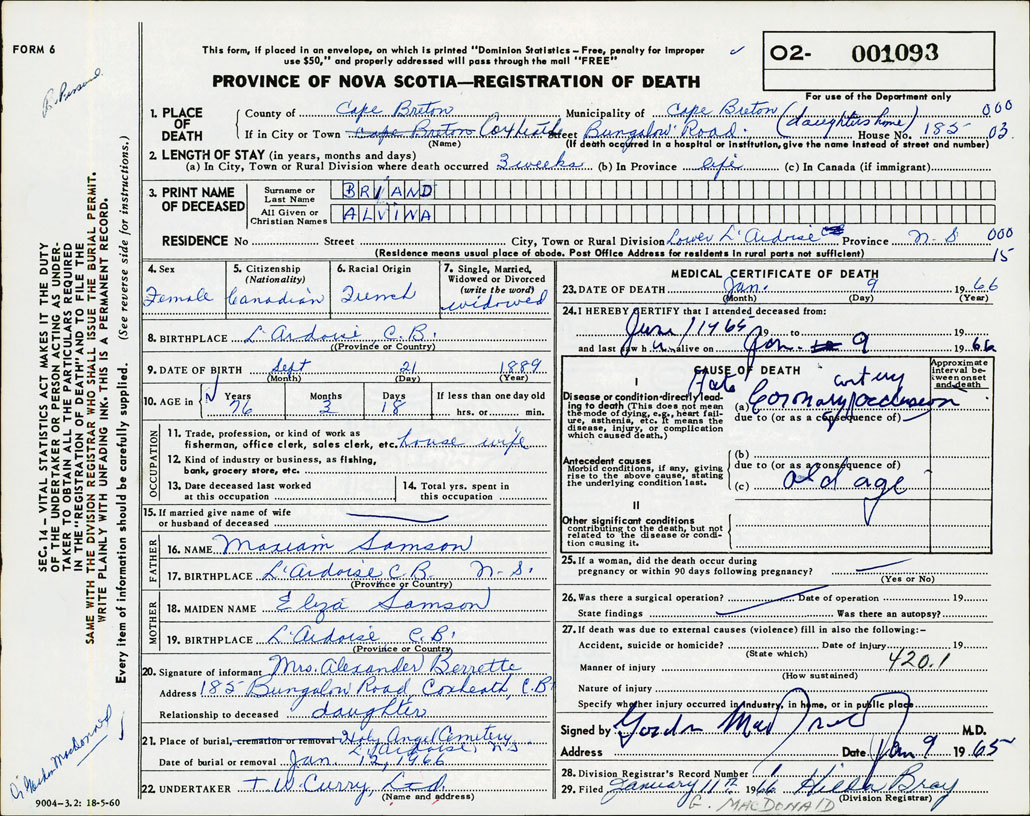 FORM 6
This form, if placed in an envelope, on which is printed "Dominion Statistics – Free, penalty for improper
use $50," and properly addressed will pass through the mail "FREE"
PROVINCE OF NOVA SCOTIA—REGISTRATION OF DEATH
O2- 001093
For use of the Department only
1. PLACE OF DEATH
County of Cape Breton Municipality of Cape Breton (daughters home) 000
If in City or Town Cape Breton Coxheath Street Bungalow Road. House No. 185 03
(Name) (If death occurred in a hospital or institution, give the name instead of street and number)
2. LENGTH OF STAY (in years, months and days)
(a) In City, Town or Rural Division where death occurred 3 weeks (b) In Province life (c) In Canada (if immigrant)
3. PRINT NAME OF DECEASED
Surname or Last Name BRIAND
All Given or Christian Names ALVINA
RESIDENCE No Street City, Town or Rural Division Lower L'Ardoise Province N-S 000
(Residence means usual place of abode. Post Office Address for residents in rural parts not sufficient) 15
4. Sex Female
5. Citizenship (Nationality) Canadian
6. Racial Origin French
7. Single, Married, Widowed or Divorced (write the word) widowed
8. BIRTHPLACE L'Ardoise C.B.
(Province or Country)
9. DATE OF BIRTH Sept 21 1889
(Month) (Day) (Year)
10. AGE in Years 76 Months 3 Days 18 If less than one day old hrs. or min.
OCCUPATION
11. Trade, profession, or kind of work as fisherman, office clerk, sales clerk, etc. house wife
12. Kind of industry or business, as fishing, bank, grocery store, etc.
13. Date deceased last worked at this occupation
14. Total yrs. spent in this occupation
15. If married give name of wife or husband of deceased
FATHER
16. NAME Samson
17. BIRTHPLACE L'Ardoise C.B. N-S.
(Province or Country)
MOTHER
18. MAIDEN NAME Eliza Samson
19. BIRTHPLACE L'Ardoise C.B.
(Province or Country)
20. Signature of informant Mrs. Alexander Berrette
Address 185 Bungalow Road Coxheath C.B
Relationship to deceased daughter
21. Place of burial, cremation or removal Holy Angel Cemetery
L'Ardoise N S
Date of burial or removal Jan. 12, 1966
22. UNDERTAKER T W Curry, Ltd.
(Name and address)
MEDICAL CERTIFICATE OF DEATH
23. DATE OF DEATH Jan. 9 1966
(Month) (Day)
24. I HEREBY CERTIFY that I attended deceased from:
June 1965 19 to 19
and last saw h alive on Jan. 9 1966
CAUSE OF DEATH
Approximate interval between onset and death
I
Disease or condition directly leading to death (This does not mean the mode of dying, e.g., heart failure, asthenia, etc. It means the disease, injury, or complication which caused death.)
(a) Coronary artery occlusion
due to (or as a consequence of)
Antecedent causes
Morbid conditions, if any, giving rise to the above cause, stating the underlying condition last.
(b)
due to (or as a consequence of)
(c) old age
II
Other significant conditions
contributing to the death, but not related to the disease or condition causing it.
25. If a woman, did the death occur during pregnancy or within 90 days following pregnancy?
(Yes or No)
26. Was there a surgical operation? Date of operation 19
State findings Was there an autopsy?
27. If death was due to external causes (violence) fill in also the following:–
Accident, suicide or homicide? Date of injury 19
(State which) 420.1
Manner of injury
(How sustained)
Nature of injury
Specify whether injury occurred in industry, in home, or in public place
Signed by Gordon M.D.
Address Date Jan 9 1965
28. Division Registrar's Record Number 1
29. Filed January 11th 1966 Hilda Bray
(Division Registrar)
G. MACDONALD
9004-3.2: 18-5-60
SEC. 14 – VITAL STATISTICS ACT MAKES IT THE DUTY
OF THE UNDERTAKER OR PERSON ACTING AS UNDER-
TAKER TO OBTAIN ALL THE PARTICULARS REQUIRED
IN THE "REGISTRATION OF DEATH" AND TO FILE THE
SAME WITH THE DIVISION REGISTRAR WHO SHALL ISSUE THE BURIAL PERMIT.
WRITE PLAINLY WITH UNFADING INK. THIS IS A PERMANENT RECORD.
Every item of information should be carefully supplied. (See reverse side for instructions.)